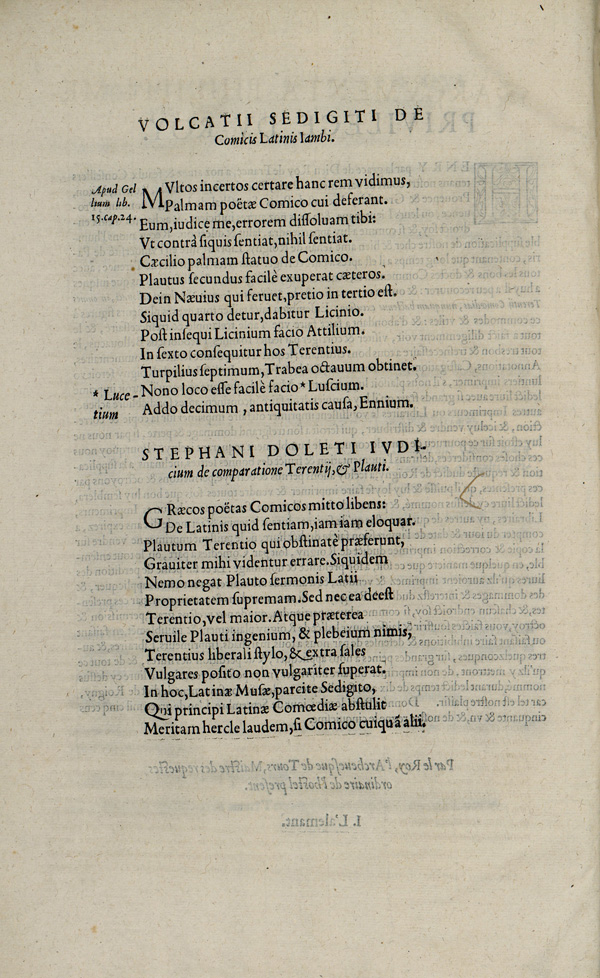 VOLCATII SEDIGITI DE
Comicis Latinis Iambi.
Apud Gel
lium lib.
15. cap. 24.
MVltos incertos certare hanc rem vidimus,
Palmam poëtæ Comico cui deferant.
Eum, iudice me, errorem dissoluam tibi:
Vt contrà siquis sentiat, nihil sentiat.
Cæcilio palmam statuo de Comico.
Plautus secundus facilè exuperat cæteros.
Dein Næuius qui feruet, pretio in tertio est.
Siquid quarto detur, dabitur Licinio.
Post insequi Licinium facio Attilium.
In sexto consequitur hos Terentius.
Turpilius septimum, Trabea octauum obtinet.
* Luce-
tium
Nono loco esse facilè facio * Luscium.
Addo decimum, antiquitatis causa, Ennium.
STEPHANI DOLETI IVDI-
cium de comparatione Terentij, & Plauti.
GRæcos poëtas Comicos mitto libens:
De Latinis quid sentiam, iam iam eloquar.
Plautum Terentio qui obstinatè præferunt,
Grauiter mihi videntur errare. Siquidem
Nemo negat Plauto sermonis Latii
Proprietatem supremam. Sed nec ea deest
Terentio, vel maior. Atque præterea
Seruile Plauti ingenium, & plebeium nimis,
Terentius liberali stylo, & extra sales
Vulgares posito non vulgariter superat.
In hoc, Latinæ Musæ, parcite Sedigito,
Qui principi Latinæ Comœdiæ abstulit
Meritam hercle laudem, si Comico cuiquã alii.